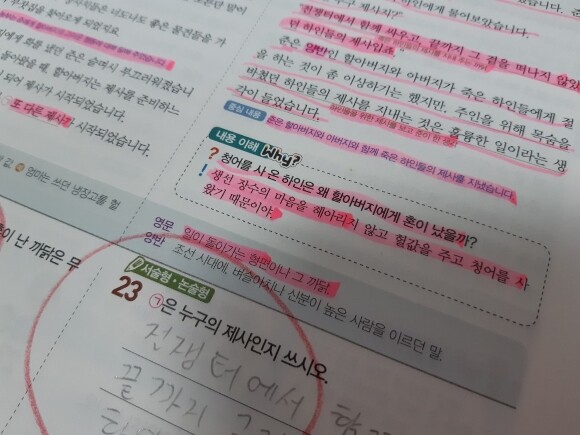 동생들은 너도나도 좋은 물건들을 가
부끄러워졌습니다
제사를 준비하느
되어 제사가 시작되었습니다.
또 다른 제사가 시작되었습니다.
하인에게 물어보았습니다.
전쟁터에서 함께 싸우고, 끝까지 그 곁을 떠나지 않았
던 하인들의 제사입죠.
준은 양반인 할아버지와 아버지가 죽은 하인들에게 절
을 하는 것이 좀 이상하기는 했지만, 주인을 위해 목숨을
바쳤던 하인들의 제사를 지내는 것은 훌륭한 일이라는 생
각이 들었습니다.
중심 내용 준은 할아버지와 아버지와 함께 죽은 하인들의 제사를 지냈습니다.
내용 이해 Why?
? 청어를 사 온 하인은 왜 할아버지에게 혼이 났을까?
! 생선 장수의 마음을 헤아리지 않고 헐값을 주고 청어를 사
왔기 때문이야.
값 예 엄마는 쓰던 냉장고를 헐
영문 일이 돌아가는 형편이나 그 까닭.
양반 조선 시대에, 벼슬아치나 신분이 높은 사람을 이르던 말.
이 난 까닭은 무
서술형·논술형
23 ㉠은 누구의 제사인지 쓰시오.
전쟁터에서 함
끝까지 그